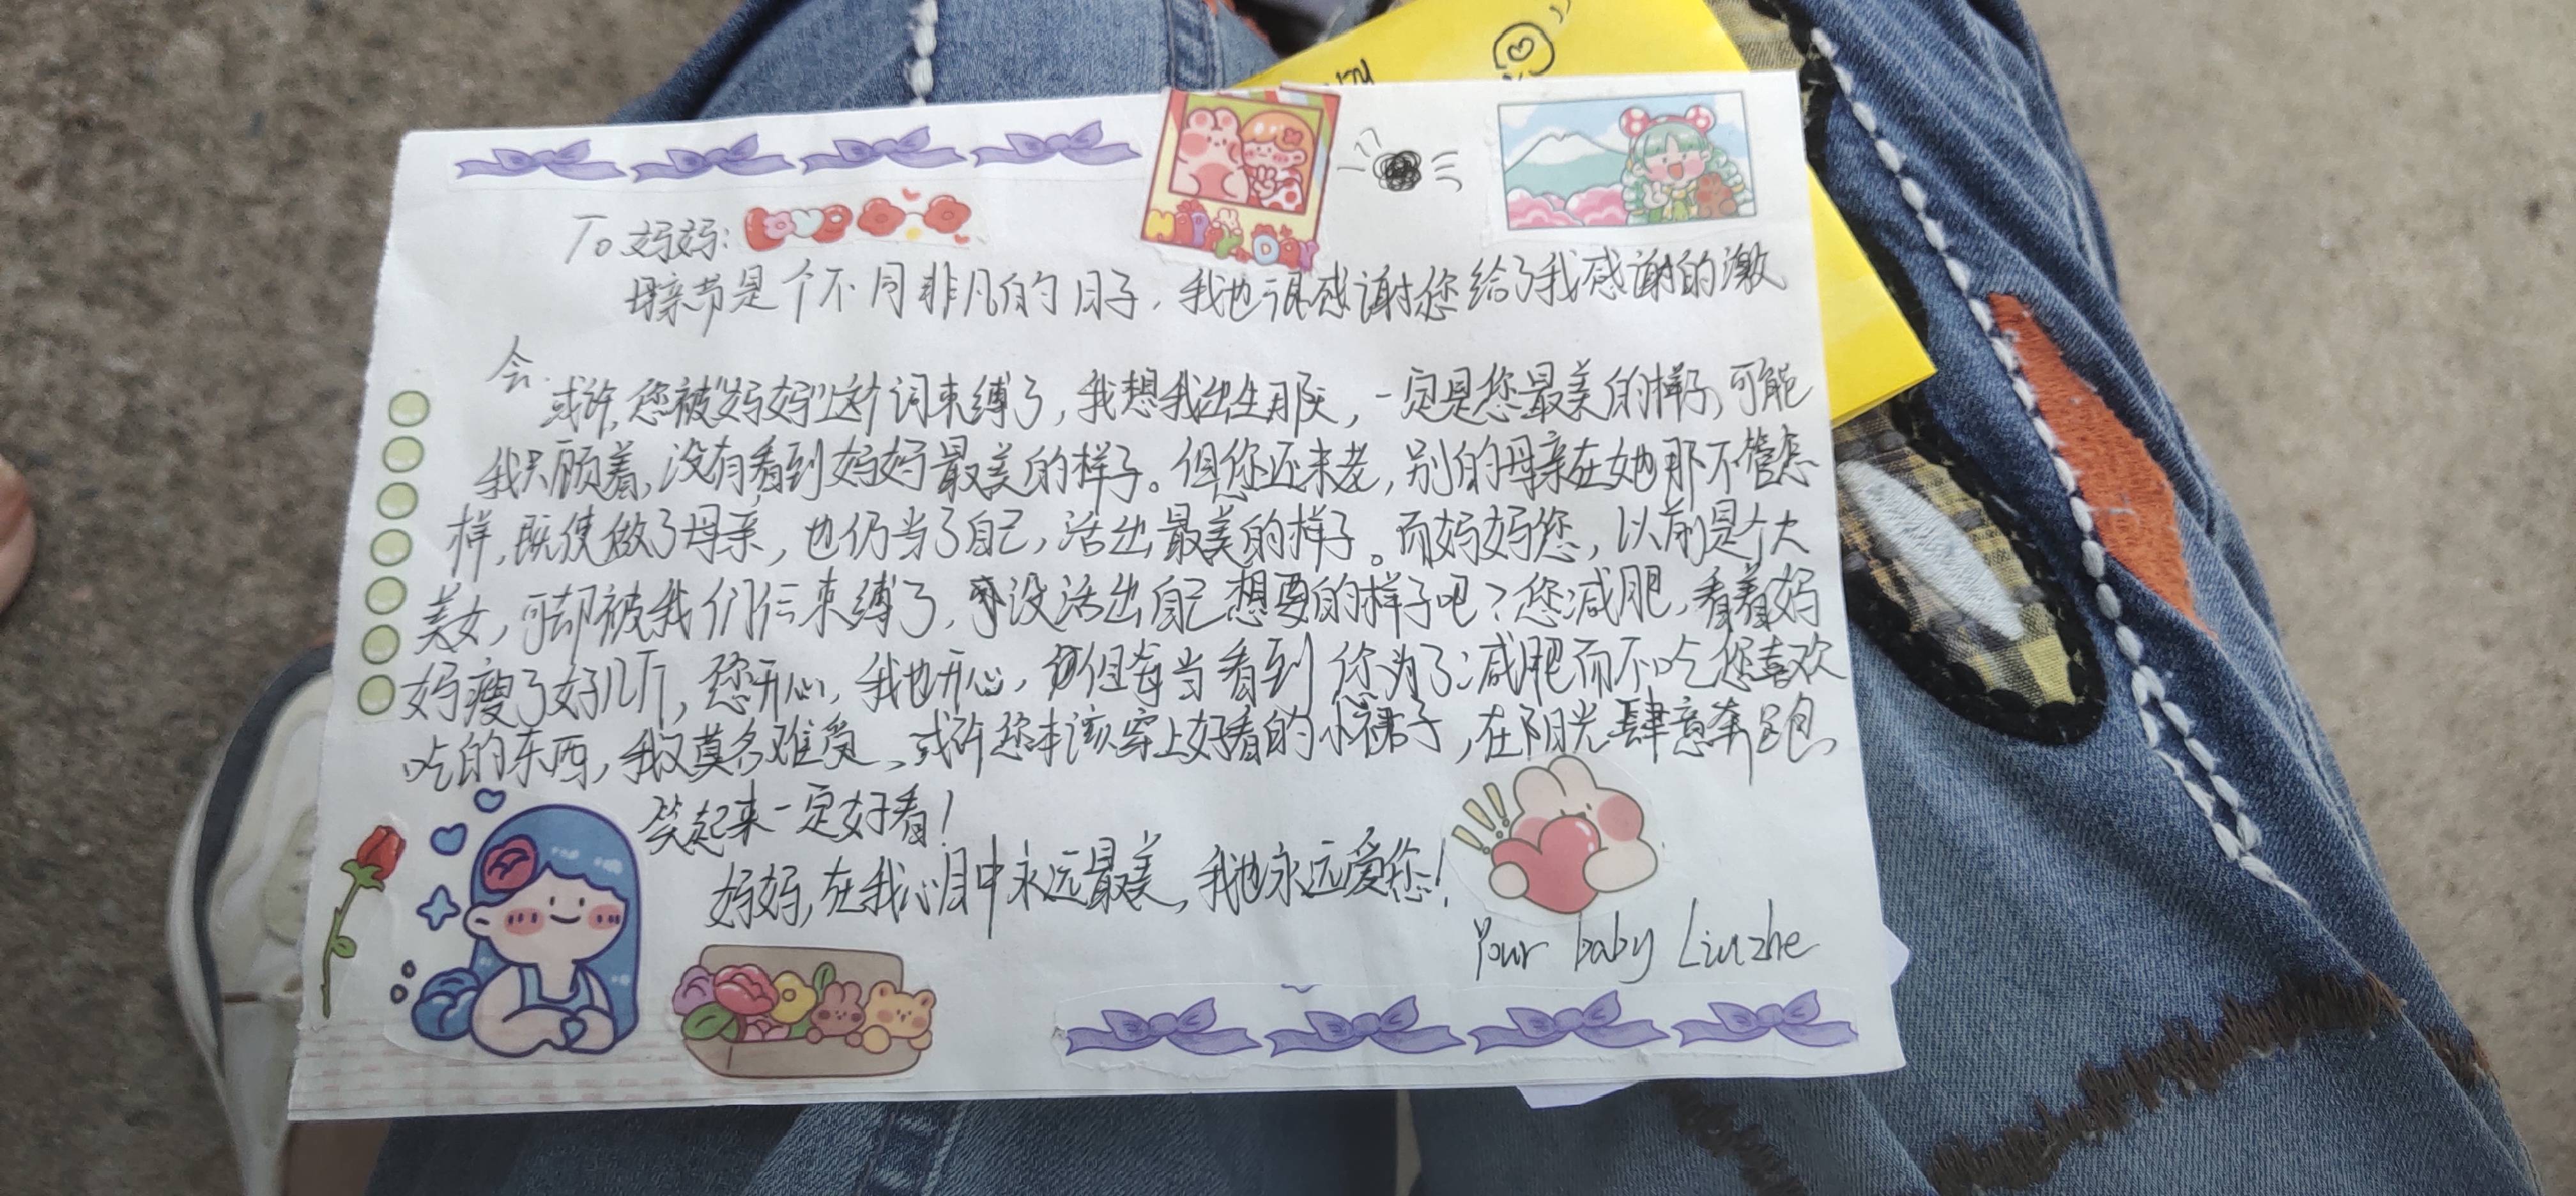 To 妈妈: Love
HAPPY DAY
母亲节是个不同非凡的日子，我也很感谢您给了我感谢的激
会.
或许,您被"妈妈"这个词束缚了,我想我出生那天,一定是您最美的样子,可能
我只顾着,没有看到妈妈最美的样子。但您还未老,别的母亲在她那不管怎
样,既使做了母亲,也仍当了自己,活出最美的样子。而妈妈您,以前是个大
美女,可却被我们仨束缚了,没活出自己想要的样子吧?您减肥,看着妈
妈瘦了好几斤,您开心,我也开心,但每当看到您为了减肥而不吃您喜欢
吃的东西,我又莫名难受、或许您本该穿上好看的小裙子,在阳光肆意奔跑、
笑起来一定好看!
妈妈,在我心目中永远最美,我也永远爱您!
Your baby Liuzhe